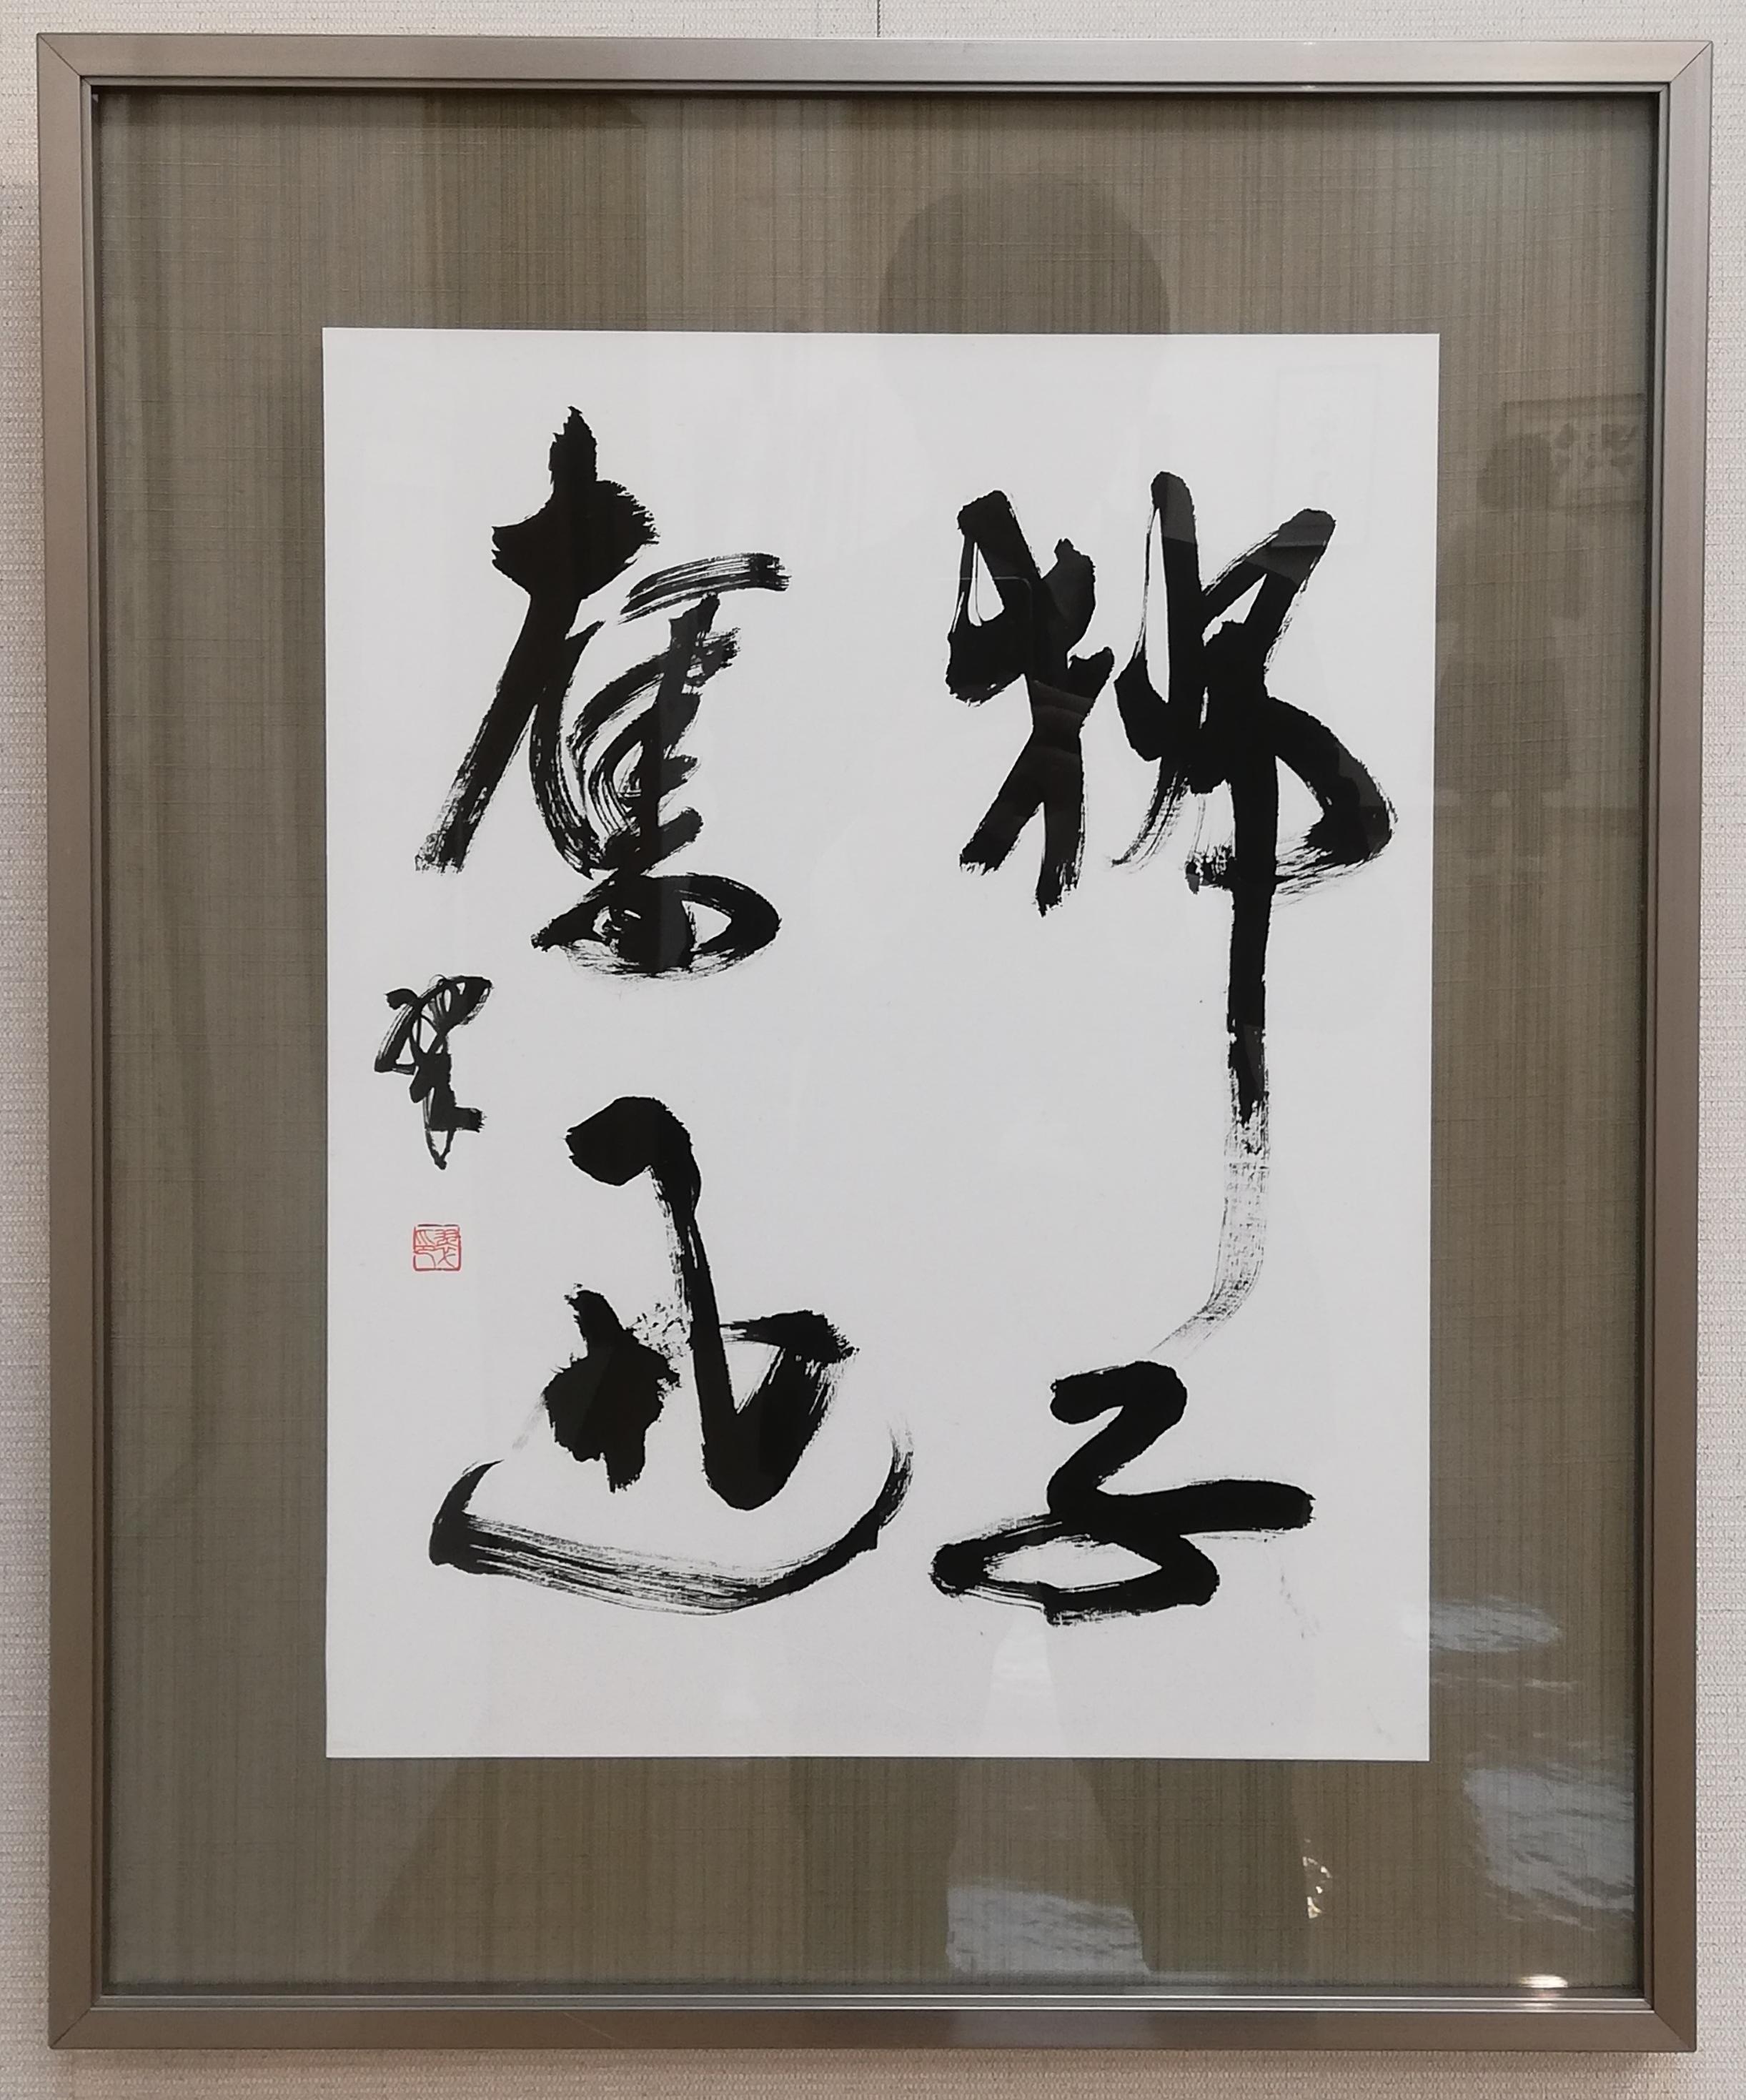 獅子
奮迅
翠